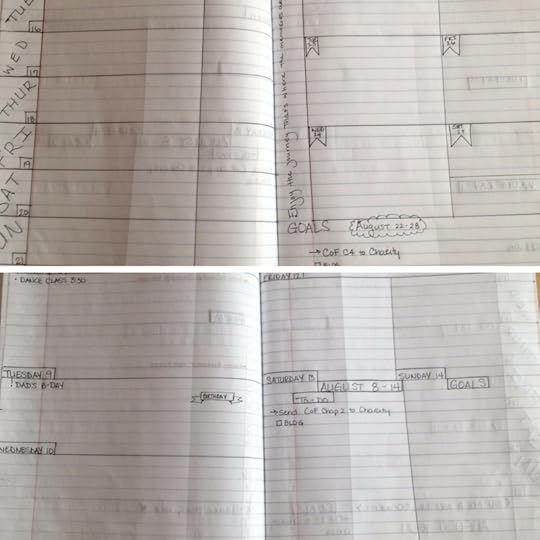 TUE
16
WED
17
THUR
18
FRI
19
SAT
20
UN
21
Enjoy the journey that's where the memories are
FRI
26
WED
24
SAT
27
GOALS
AUGUST 22-28
→ COF C4 to Charity
BLOG
- DANCE CLASS 5:30
FRIDAY 12
TUESDAY 9
! DAD'S B-DAY
BIRTHDAY
WEDNESDAY 10
SATURDAY 13
AUGUST 8-14
SUNDAY 14
GOALS
TO-DO
→ Send COF Chap 2 to Charity
BLOG